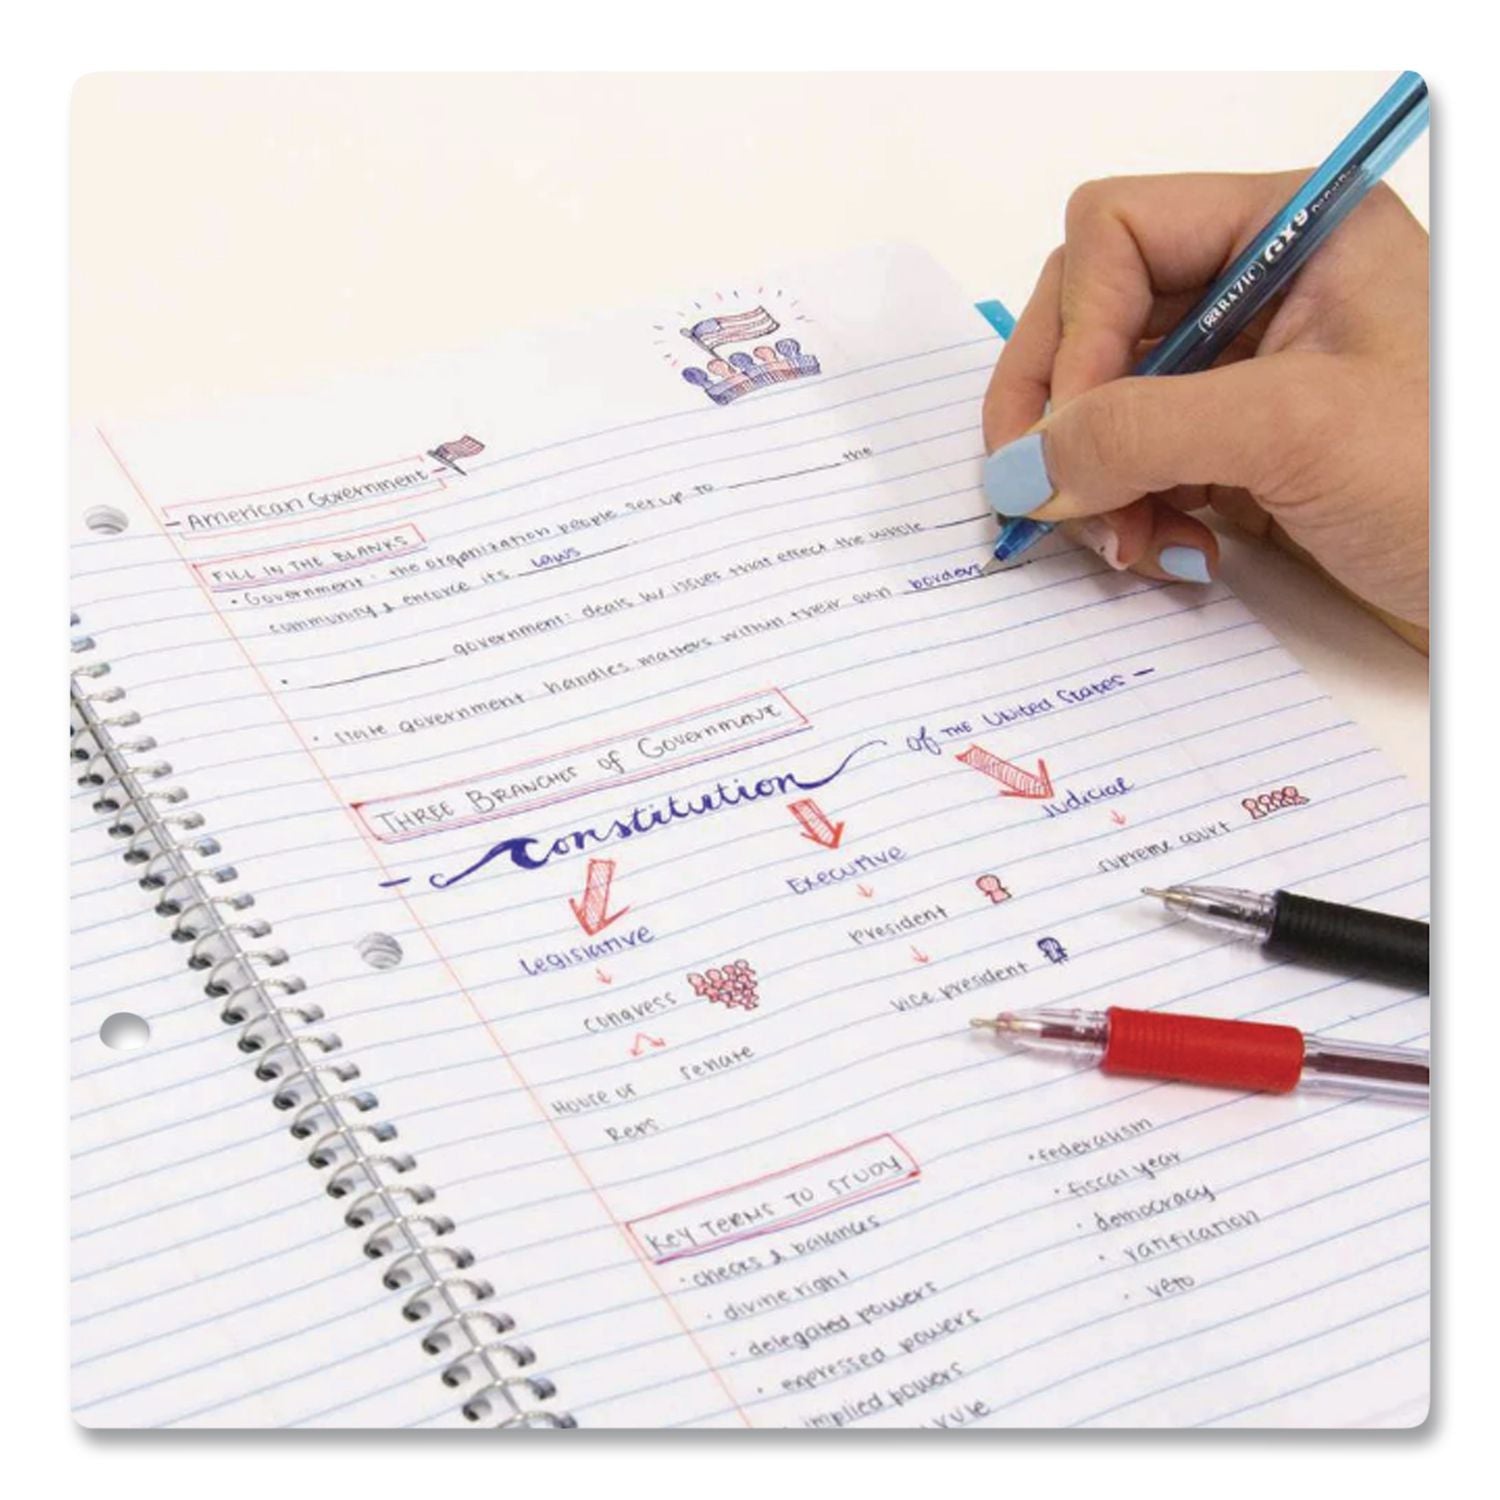 American Government
FILL IN THE BLANKS
• Government: the organization people set up to ________ the
community & enforce its laws
• ________ government: deals w/ issues that effect the whole ____
________.
• State government handles matters within their own borders
THREE BRANCHES of Government
- Constitution of THE United States -
Legislative Executive Judicial
congress president supreme court
House of Reps senate vice president
KEY TERMS TO STUDY
• checks & balances
• divine right
• delegated powers
• expressed powers
• implied powers
rule
• federalism
• fiscal year
• democracy
• ratification
• veto
BAZIC GX9